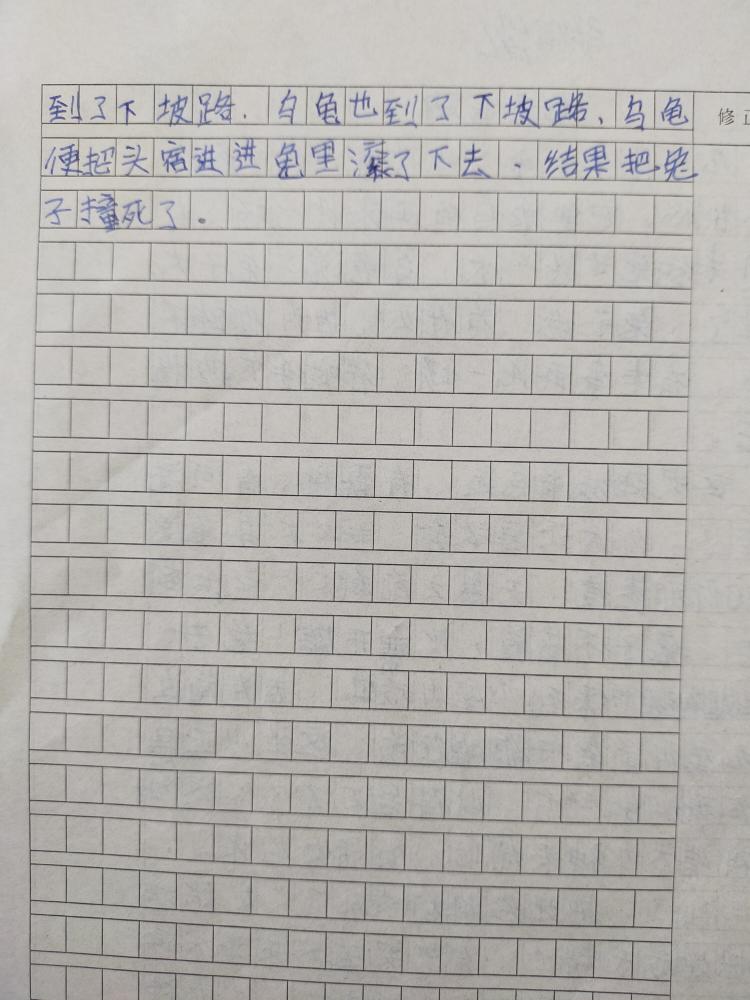 到了下坡路.乌龟也到了下坡路、乌龟 修正
便把头宿进进龟里滚了下去.结果把兔
子撞死了.